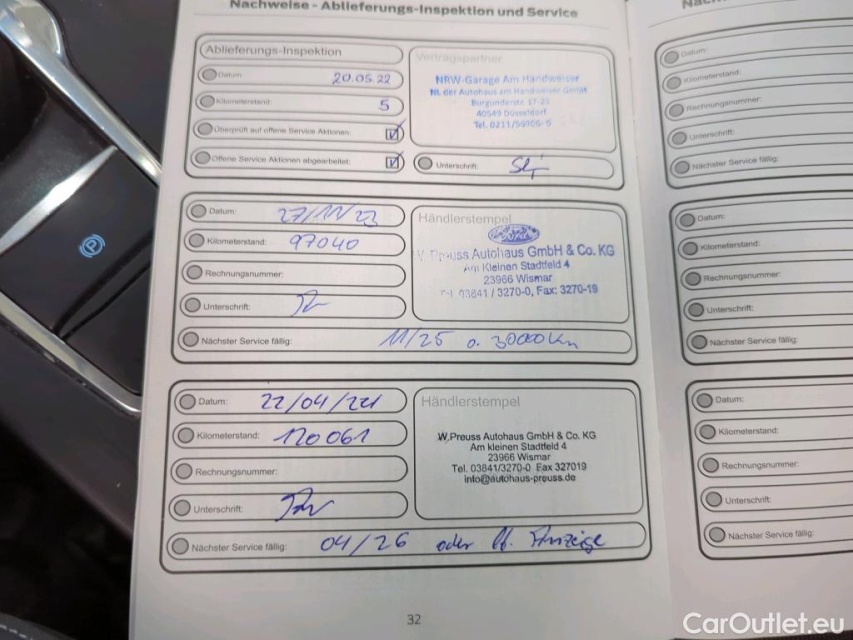 Nachweise - Ablieferungs-Inspektion und Service
Ablieferungs-Inspektion
Datum: 20.05.22
Kilometerstand: 5
Überprüft auf offene Service Aktionen:
Offene Service Aktionen abgearbeitet:
Vertragspartner
NRW-Garage Am Handweiser
NL der Autohaus am Handweiser GmbH
Burgunderstr. 17-23
40549 Düsseldorf
Tel. 0211/
Unterschrift:
Datum: 27/11/23
Kilometerstand: 97040
Rechnungsnummer:
Unterschrift:
Nächster Service fällig: 11/25 o. 30000 Km
Händlerstempel
Ford
W. Preuss Autohaus GmbH & Co. KG
Am Kleinen Stadtfeld 4
23966 Wismar
Tel. 03841 / 3270-0, Fax: 3270-19
Datum: 22/04/24
Kilometerstand: 120061
Rechnungsnummer:
Unterschrift:
Nächster Service fällig: 04/26 oder lt. Anzeige
Händlerstempel
W.Preuss Autohaus GmbH & Co. KG
Am kleinen Stadtfeld 4
23966 Wismar
Tel. 03841/3270-0 Fax 327019
info@autohaus-preuss.de
32
Datum:
Kilometerstand:
Rechnungsnummer:
Unterschrift:
Nächster Service fällig:
Datum:
Kilometerstand:
Rechnungsnummer:
Unterschrift:
Nächster Service fällig:
Datum:
Kilometerstand:
Rechnungsnummer:
Unterschrift:
Nächster Service fällig:
CarOutlet.eu